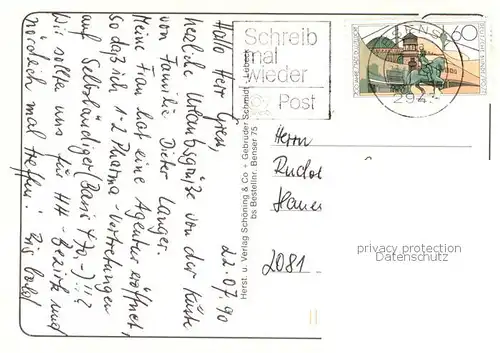 22.07.90
Hallo Herr
herzliche Urlaubsgrüße von der Küste
von Familie Dieter Langer.
Meine Frau hat eine Agentur eröffnet,
so daß ich 1-2 Pharma-Vertretungen
auf Selbständiger (Basis
Wir sollten uns für HH-Bezirk und
nördlich mal treffen! Bis bald
Herst. u. Verlag Schöning & Co + Gebrüder Schmidt, Lübeck
bs Bestellnr. Benser 75
Schreib
mal
wieder
Post
BENS
60
Herrn
Rudol
2081
privacy protection
Datenschutz